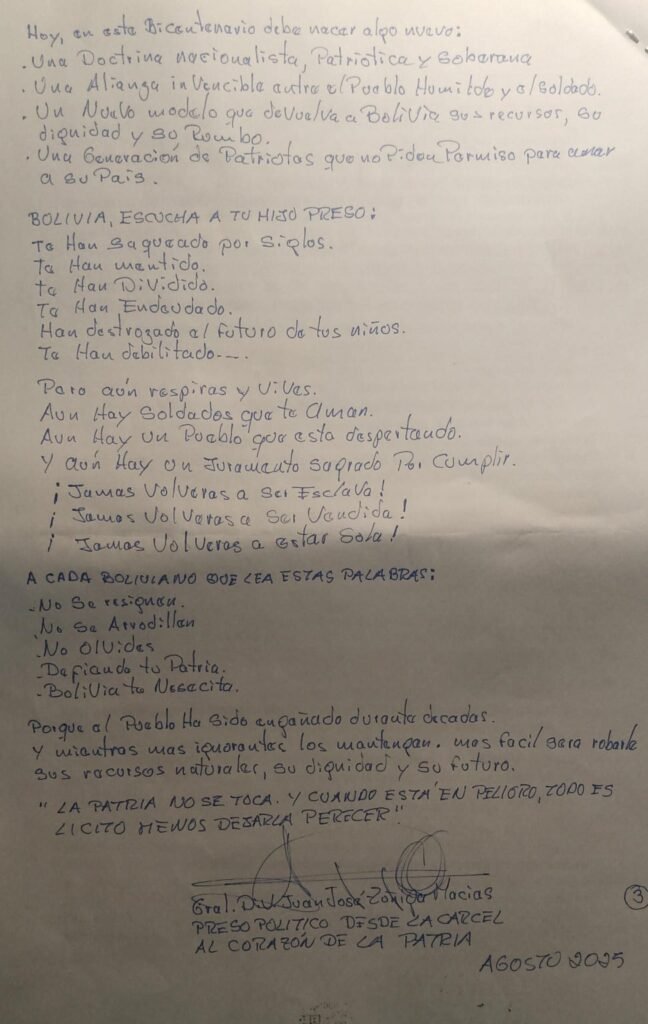 Hoy, en este Bicentenario debe nacer algo nuevo:
. Una Doctrina nacionalista, Patriótica y Soberana
. Una Alianza invencible entre el Pueblo Humilde y el Soldado.
. Un Nuevo modelo que devuelva a Bolivia sus recursos, su
dignidad y su Rumbo.
. Una Generación de Patriotas que no Piden Permiso para amar
a su País.
BOLIVIA, ESCUCHA A TU HIJO PRESO:
Te Han saqueado por Siglos.
Te Han mentido.
te Han Dividido.
Te Han Endeudado.
Han destrozado el futuro de tus niños.
Te Han debilitado----.
Pero aún respiras y vives.
Aun Hay Soldados que te aman.
Aun Hay un Pueblo que esta despertando.
Y aún Hay un Juramento Sagrado Por Cumplir.
¡Jamas Volveras a Ser Esclava!
¡ Jamas Volveras a Ser Vendida!
¡ Jamas Volveras a Estar Sola!
A CADA BOLIVIANO QUE LEA ESTAS PALABRAS:
-No Se resignen.
-No Se Arrodillen
-No Olvides
-Defiende tu Patria.
-Bolivia te Nesecita.
Porque al Pueblo Ha Sido engañado durante decadas.
Y mientras mas ignorantes los mantengan. mas facil sera robarle
sus recursos naturales, su dignidad y su futuro.
"LA PATRIA NO SE TOCA. Y CUANDO ESTÁ EN PELIGRO, TODO ES
LICITO MENOS DEJARLA PERECER".
Gral. Div. Juan José Zúñiga Macias
PRESO POLITICO DESDE LA CARCEL
AL CORAZÓN DE LA PATRIA
3
AGOSTO 2025